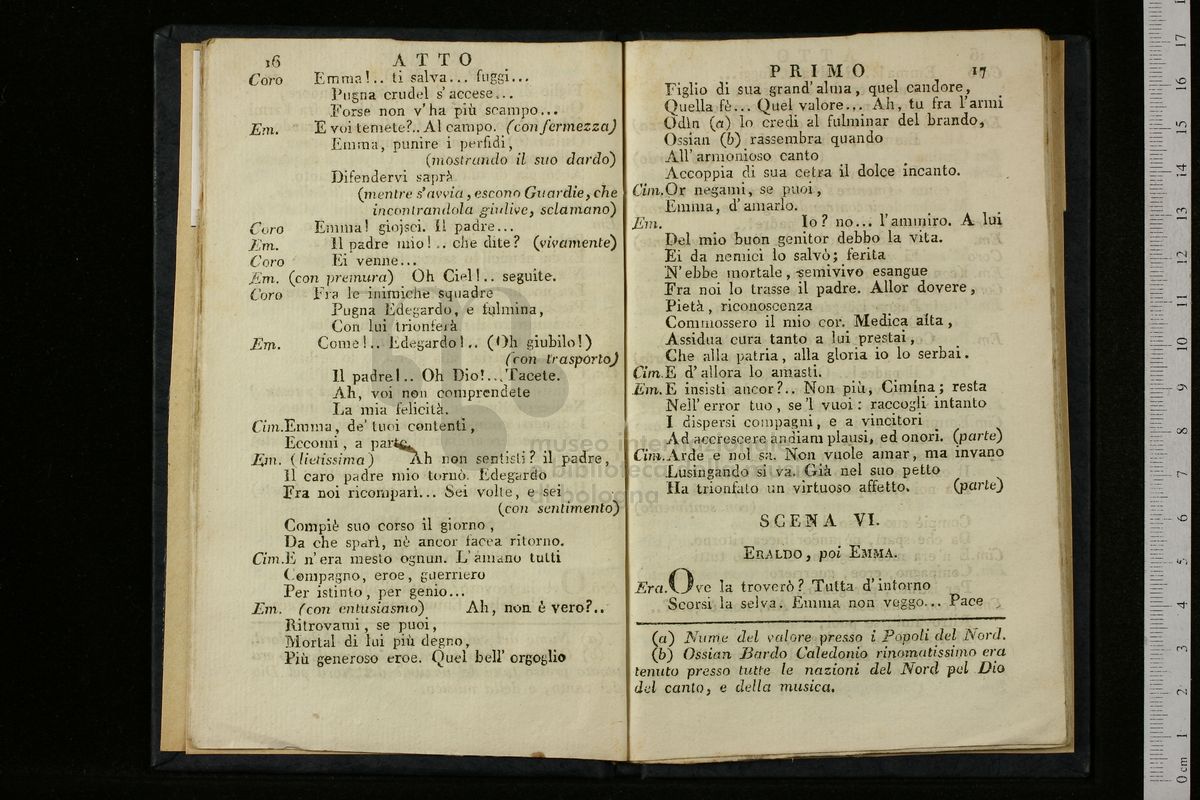 16 ATTO
Coro Emma!.. ti salva... fuggi...
Pugna crudel s'accese...
Forse non v'ha più scampo...
Em. E voi temete?.. Al campo. (con fermezza)
Emma, punire i perfidi,
(mostrando il suo dardo)
Difendervi saprà
(mentre s'avvia, escono Guardie, che
incontrandola giulive, sclamano)
Coro Emma! giojsci. Il padre...
Em. Il padre mio!.. che dite? (vivamente)
Coro Ei venne...
Em. (con premura) Oh Ciel!.. seguite.
Coro Fra le inimiche squadre
Pugna Edegardo, e fulmina,
Con lui trionferà
Em. Come!.. Edegardo!.. (Oh giubilo!)
(con trasporto)
Il padre!.. Oh Dio!... Tacete.
Ah, voi non comprendete
La mia felicità.
Cim. Emma, de' tuoi contenti,
Eccomi, a parte.
Em. (lietissima) Ah non sentisti? il padre,
Il caro padre mio tornò. Edegardo
Fra noi ricomparì... Sei volte, e sei
(con sentimento)
Compiè suo corso il giorno,
Da che sparì, nè ancor facea ritorno.
Cim. E n'era mesto ognun. L'amano tutti
Compagno, eroe, guerriero
Per istinto, per genio...
Em. (con entusiasmo) Ah, non è vero?..
Ritrovami, se puoi,
Mortal di lui più degno,
Più generoso eroe. Quel bell' orgoglio
PRIMO 17
Figlio di sua grand' alma, quel candore,
Quella fè... Quel valore... Ah, tu fra l'armi
Odìn (a) lo credi al fulminar del brando,
Ossian (b) rassembra quando
All' armonioso canto
Accoppia di sua cetra il dolce incanto.
Cim. Or negami, se puoi,
Emma, d'amarlo.
Em. Io? no... l'ammiro. A lui
Del mio buon genitor debbo la vita.
Ei da nemici lo salvò; ferita
N'ebbe mortale, semivivo esangue
Fra noi lo trasse il padre. Allor dovere,
Pietà, riconoscenza
Commossero il mio cor. Medica aita,
Assidua cura tanto a lui prestai,
Che alla patria, alla gloria io lo serbai.
Cim. E d'allora lo amasti.
Em. E insisti ancor?.. Non più, Cimina; resta
Nell' error tuo, se 'l vuoi: raccogli intanto
I dispersi compagni, e a vincitori
Ad accrescere andiam plausi, ed onori. (parte)
Cim. Arde e nol sa. Non vuole amar, ma invano
Lusingando si va. Già nel suo petto
Ha trionfato un virtuoso affetto. (parte)
SCENA VI.
ERALDO, poi EMMA.
Era. Ove la troverò? Tutta d'intorno
Scorsi la selva. Emma non veggo... Pace
(a) Nume del valore presso i Popoli del Nord.
(b) Ossian Bardo Caledonio rinomatissimo era
tenuto presso tutte le nazioni del Nord pel Dio
del canto, e della musica.
museo internazionale
e biblioteca
di bologna
0 cm 1 2 3 4 5 6 7 8 9 10 11 12 13 14 15 16 17